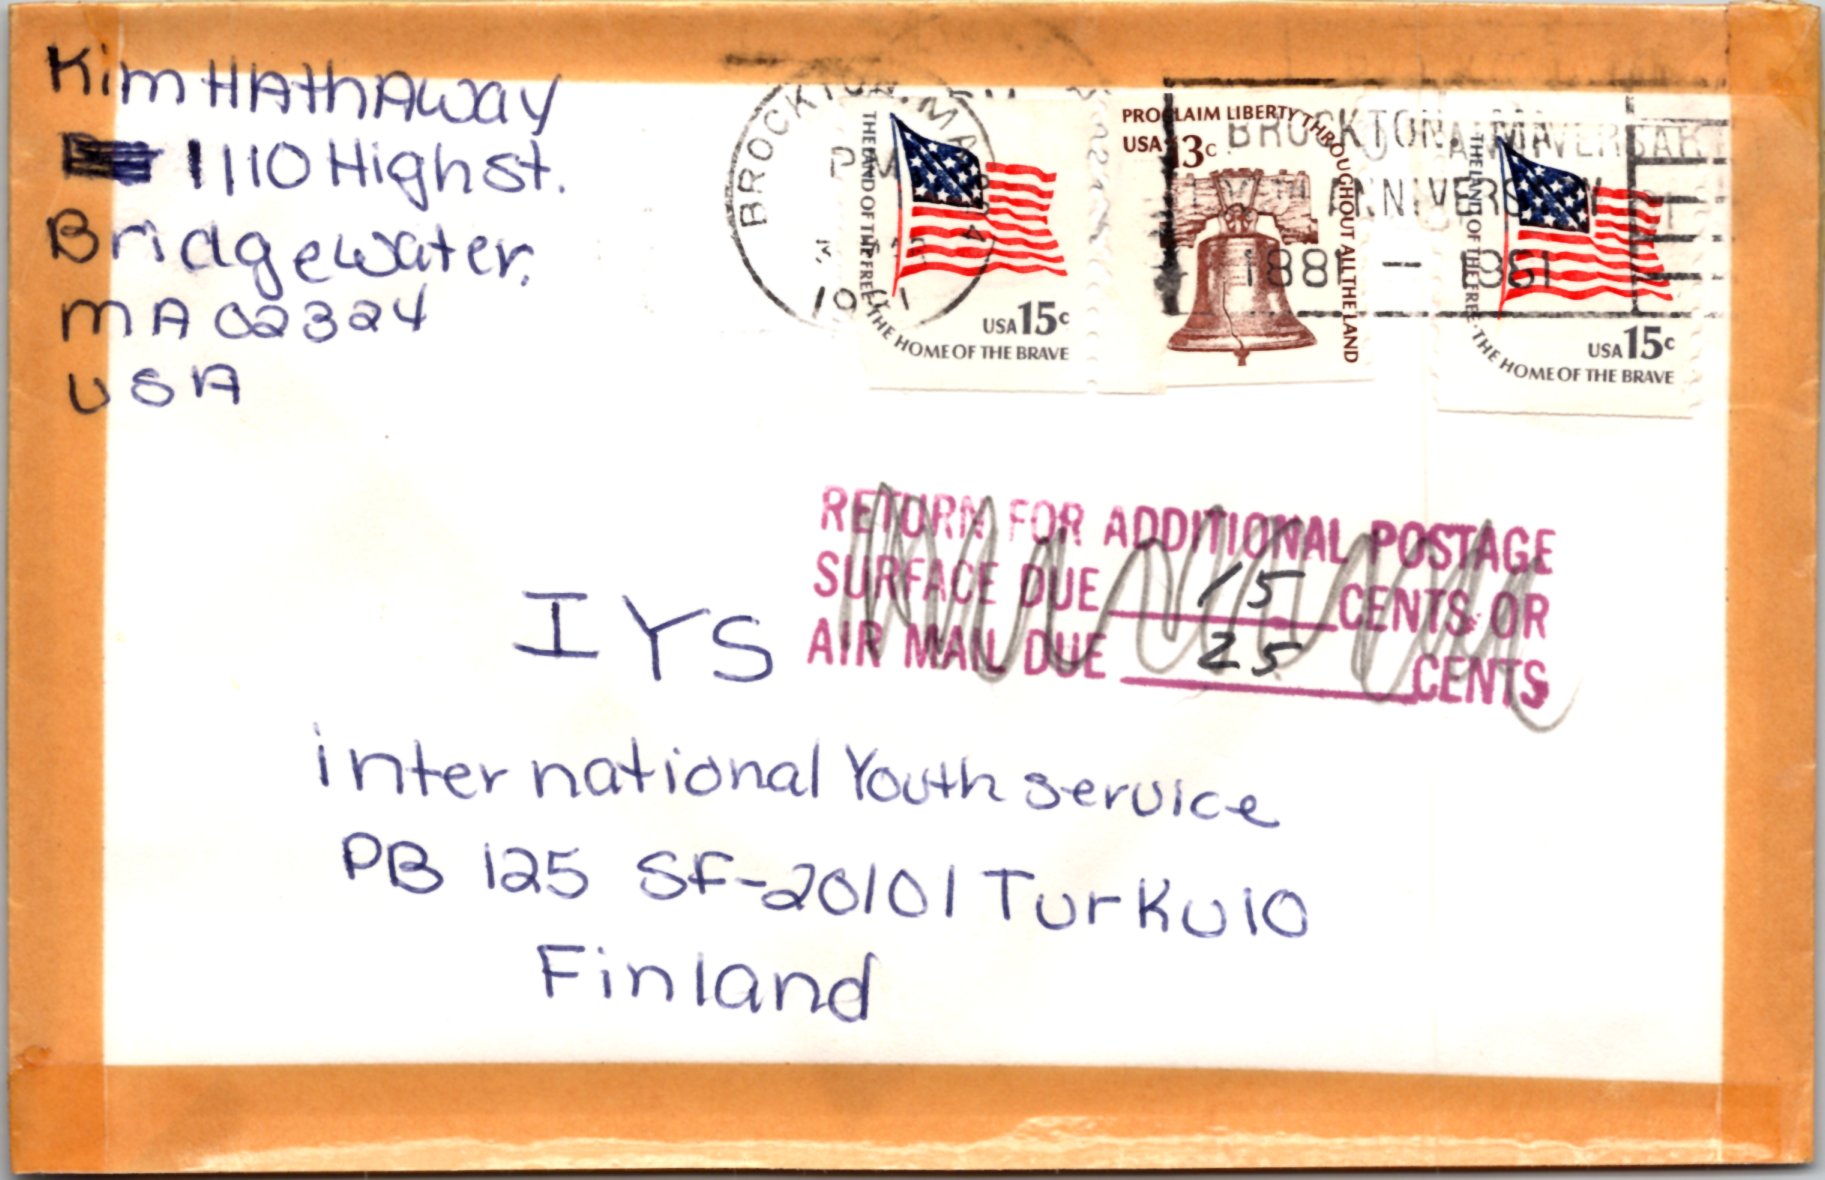 Kim HAthAway
1110 High st.
Bridgewater,
MA 02324
USA
BROCKTON, MA
PM
1981
THE LAND OF THE FREE · THE HOME OF THE BRAVE
USA 15c
PROCLAIM LIBERTY THROUGHOUT ALL THE LAND
USA 13c
BROCKTON, MA
ANNIVERSARY
1881 — 1981
THE LAND OF THE FREE · THE HOME OF THE BRAVE
USA 15c
RETURN FOR ADDITIONAL POSTAGE
SURFACE DUE 15 CENTS OR
AIR MAIL DUE 25 CENTS
IYS
international Youth service
PB 125 SF-20101 Turku 10
Finland